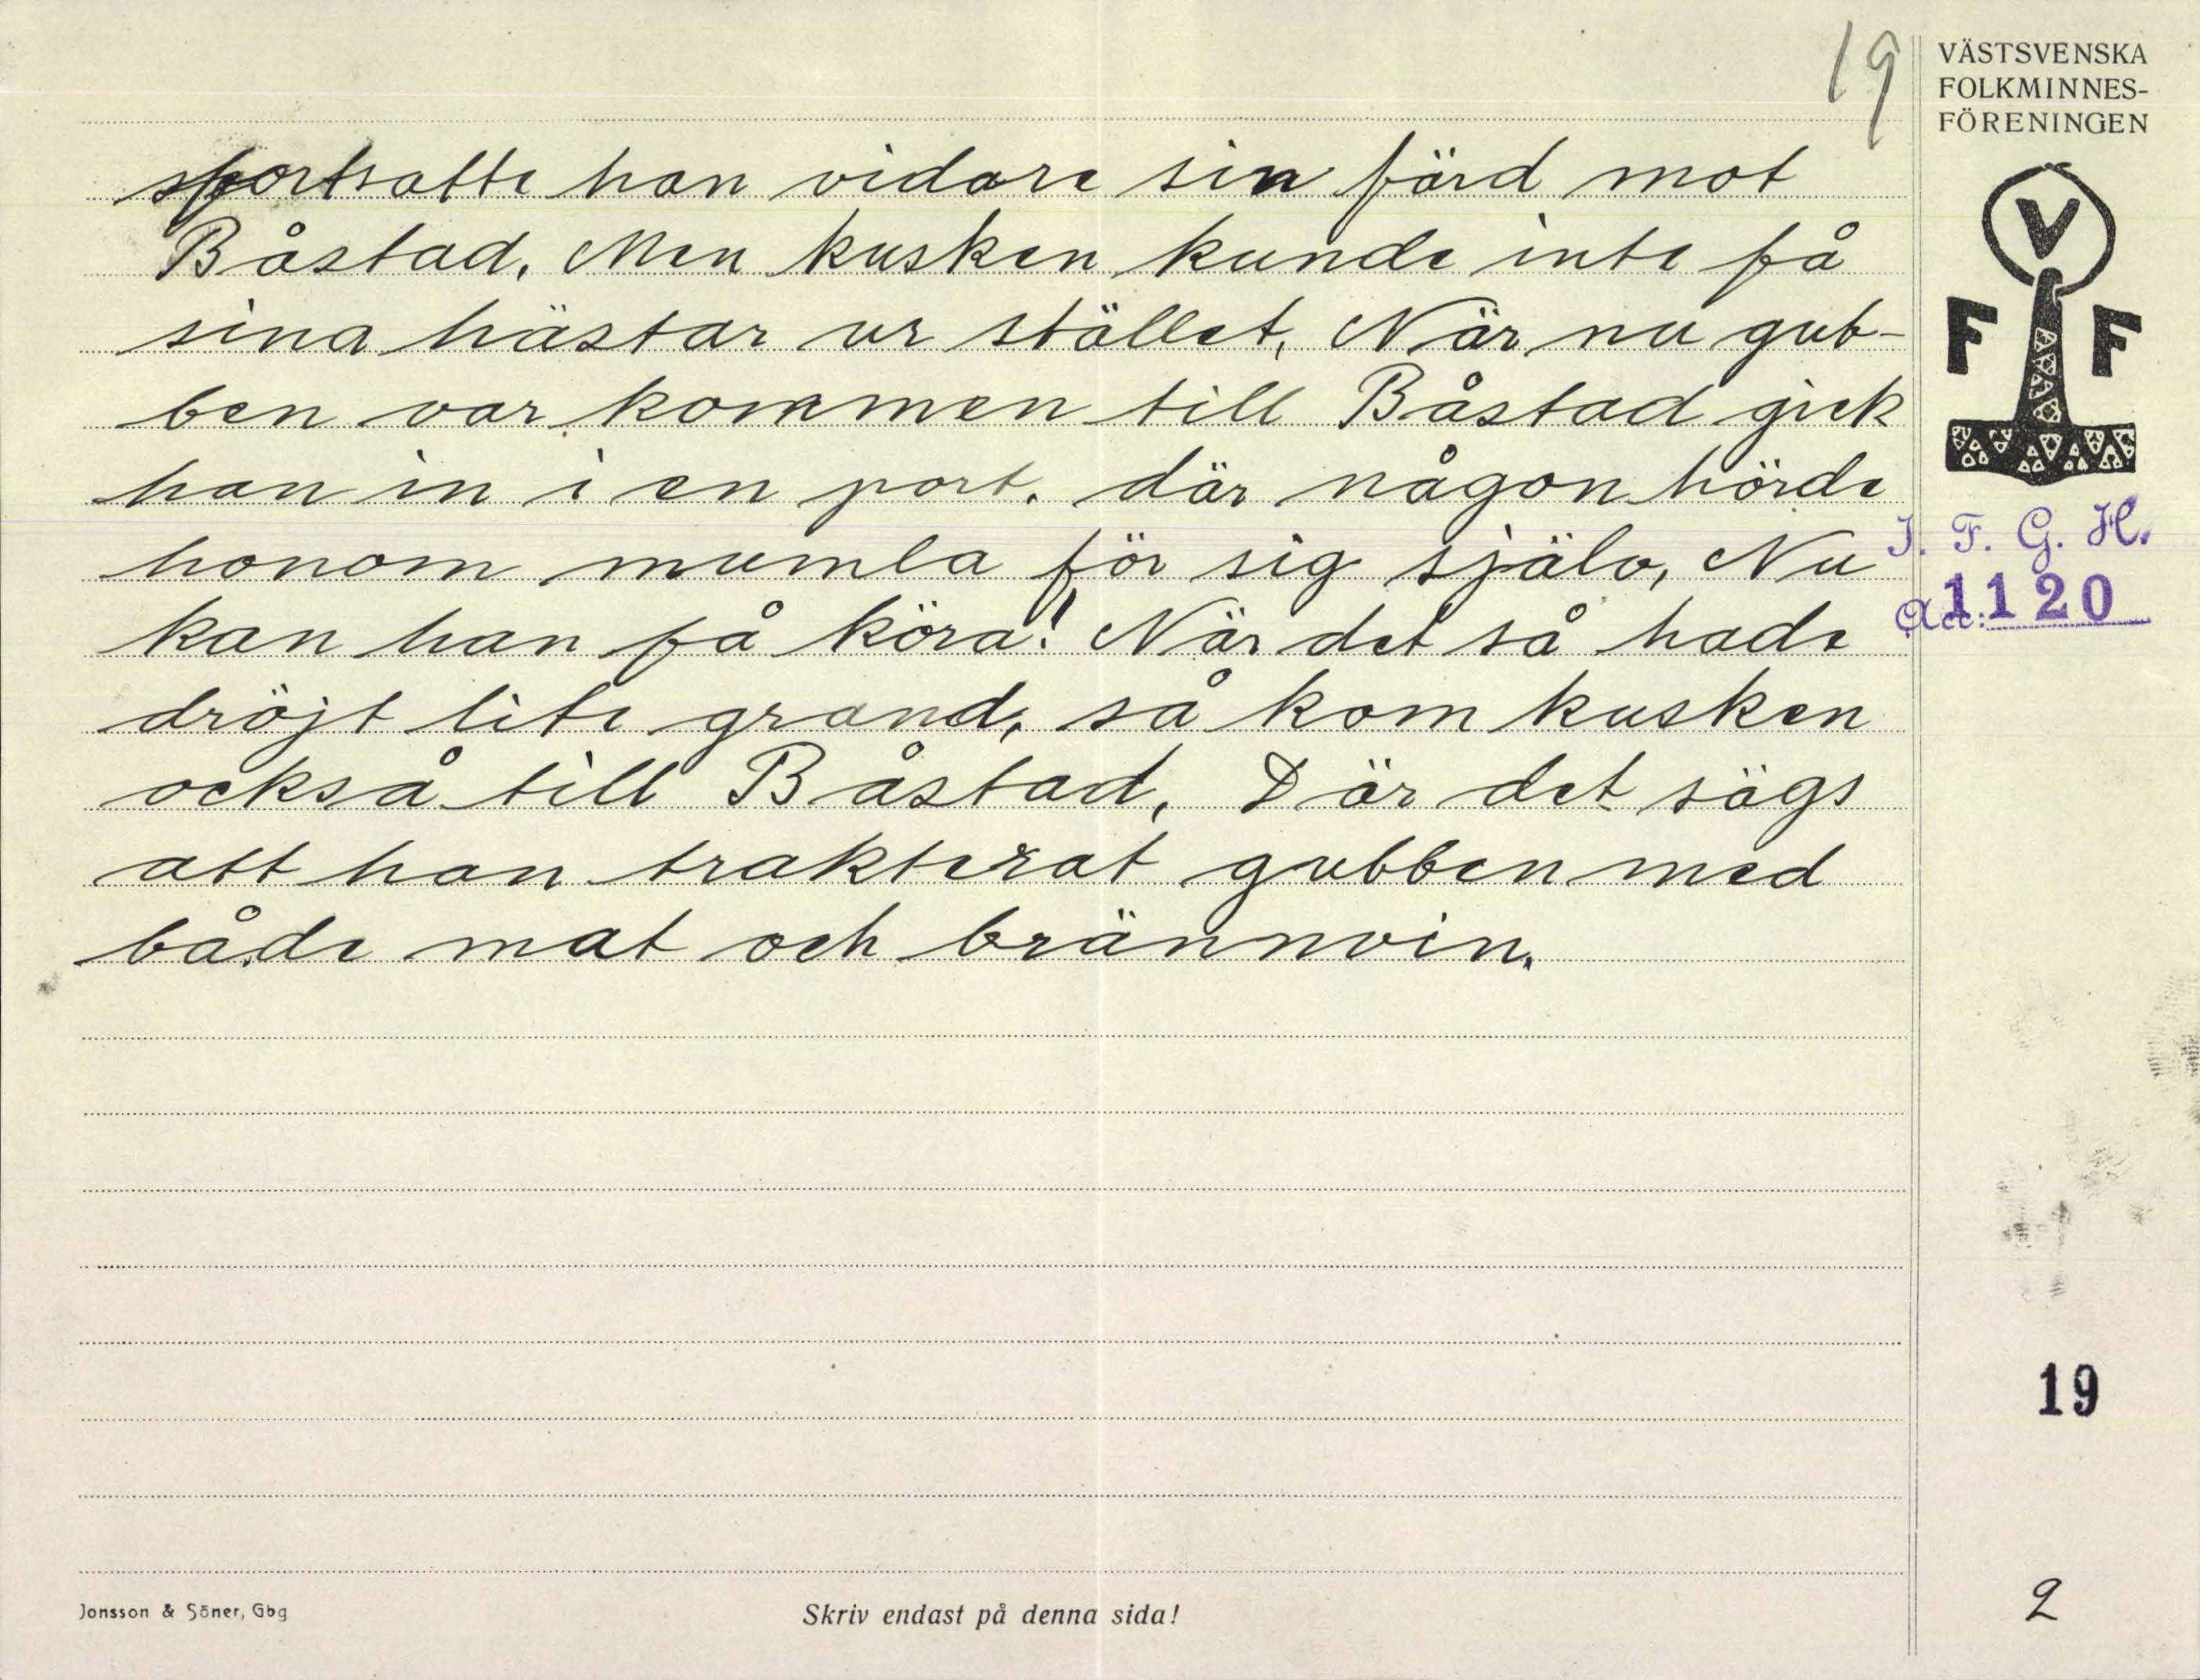 19
VÄSTSVENSKA
FOLKMINNES-
FÖRENINGEN
V
F F
fortsatte han vidare sin färd mot
Båstad. Men kusken kunde inte få
sina hästar ur stället. När nu gub-
ben var kommen till Båstad gick
han in i en port. där någon hörde
honom mumla för sig själv, Nu
kan han få köra! När det så hade
dröjt lite grand, så kom kusken
också till Båstad. Där det sägs
att han trakterat gubben med
både mat och brännvin.
I. F. G. H.
Acc: 1120
19
2
Jonsson & Söner, Gbg
Skriv endast på denna sida!